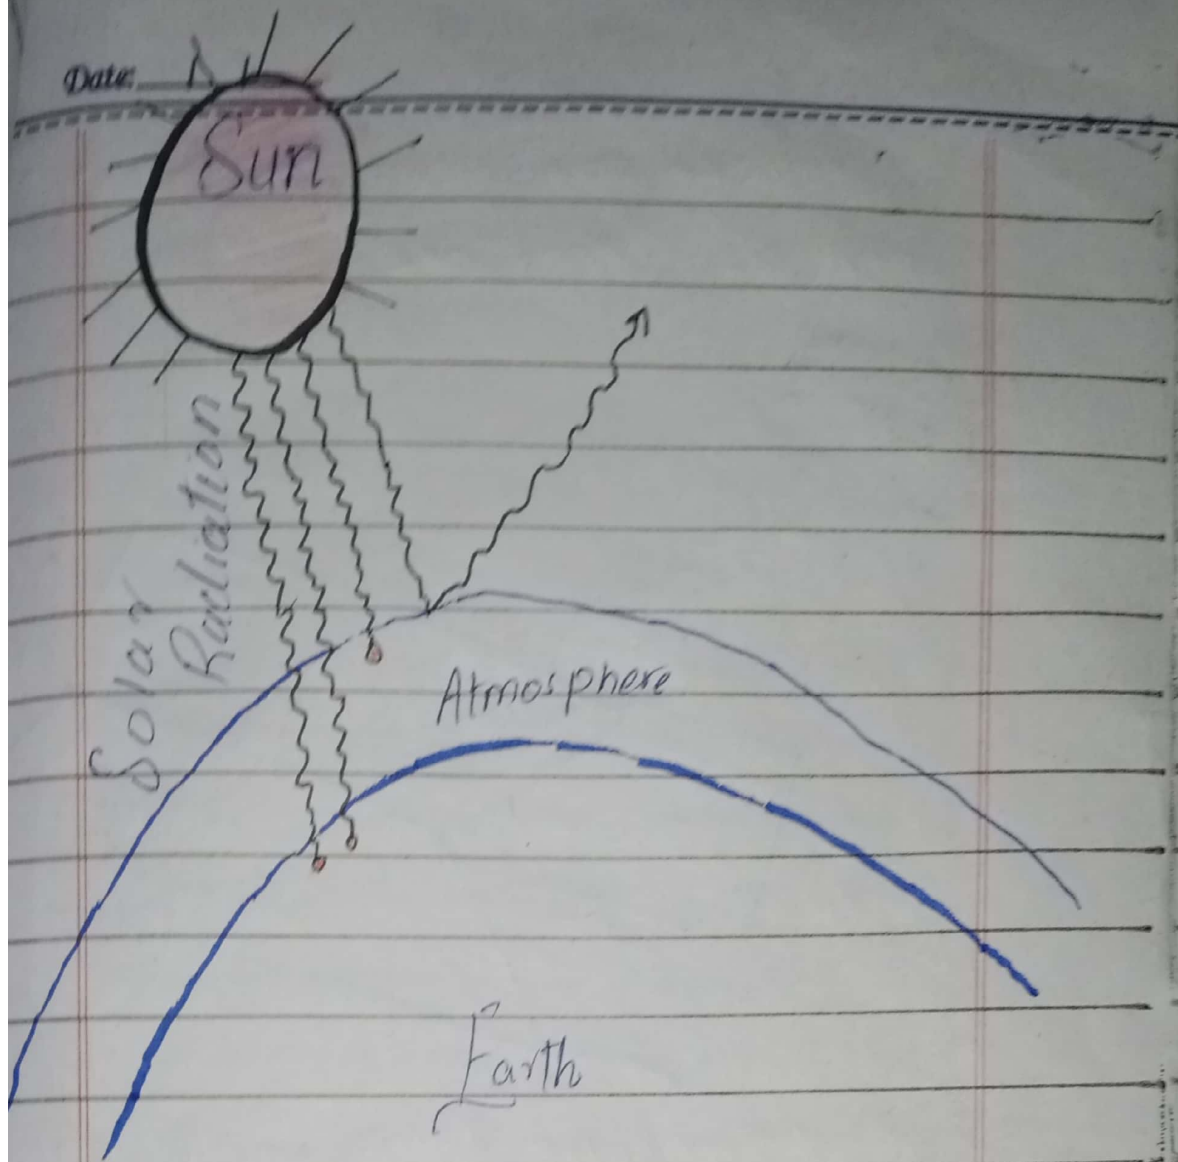 Date:
Sun
Solar
Radiation
Atmosphere
Earth